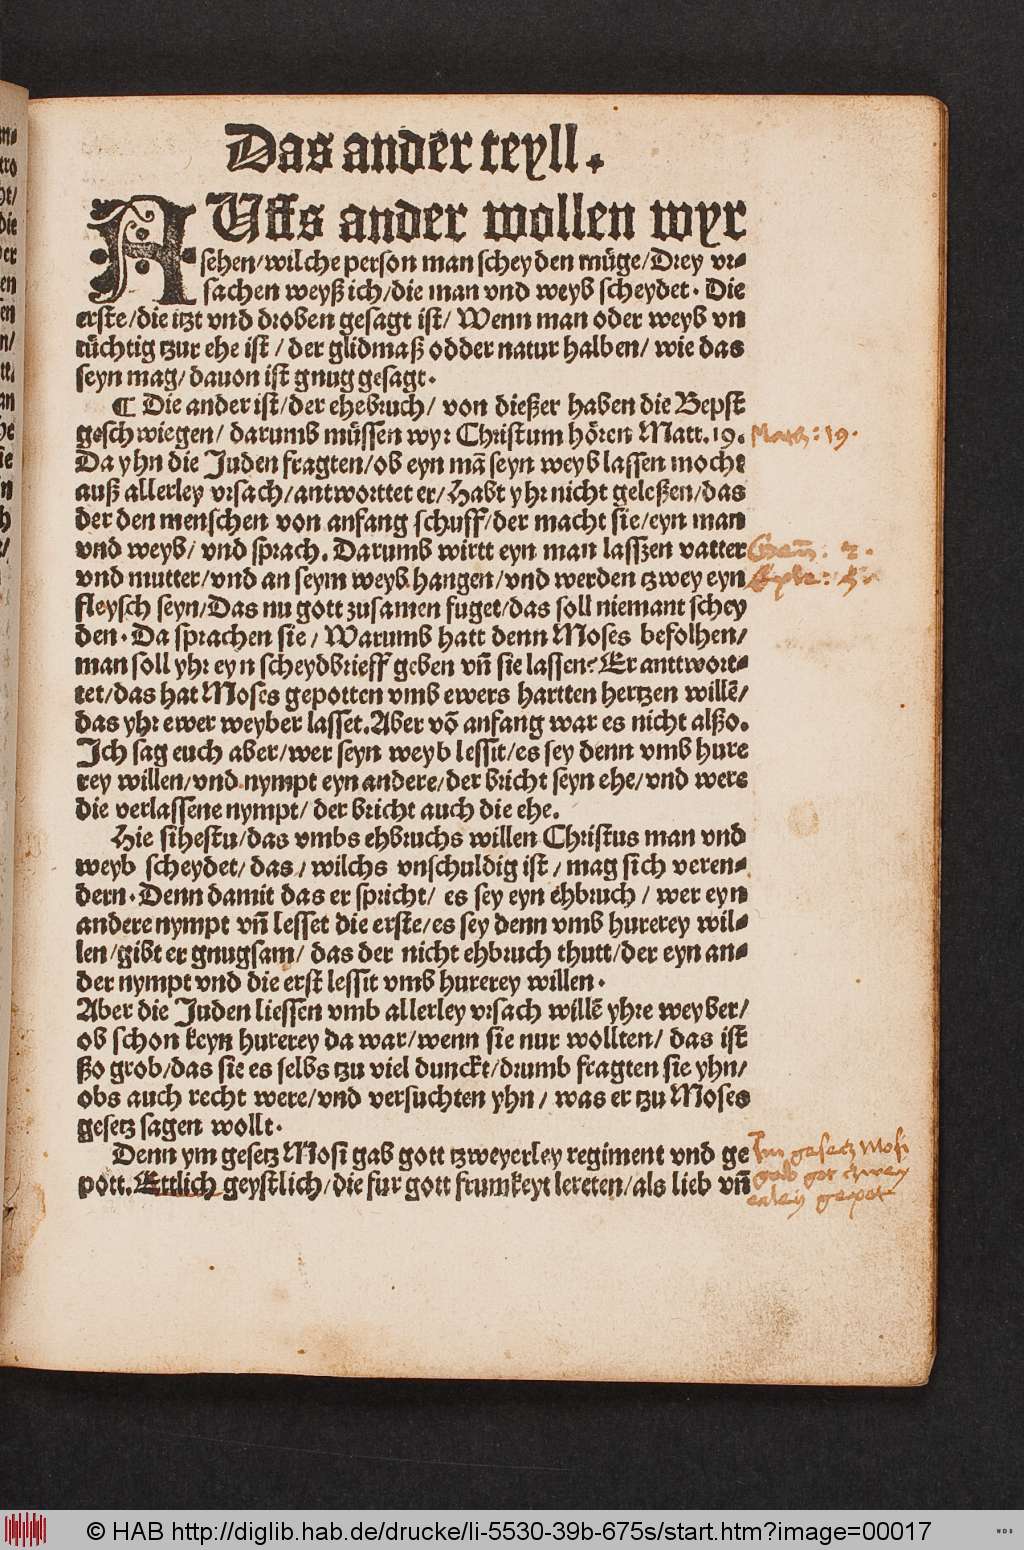 Das ander teyll.
AUffs ander wollen wyr
sehen/wilche person man scheyden müge/Drey vr-
sachen weyß ich/die man vnd weyb scheydet. Die
erste/die itzt vnd droben gesagt ist/ Wenn man oder weyb vn
tüchtig tzur ehe ist/ der glidmaß odder natur halben/ wie das
seyn mag/ dauon ist gnug gesagt.
¶ Die ander ist/der ehebruch/ von dießer haben die Bepst
geschwiegen/ darumb müssen wyr Christum hören Matt.19. Math: 19.
Da yhn die Juden fragten/ob eyn mā seyn weyb lassen mocht
auß allerley vrsach/antworttet er/Habt yhr nicht geleßen/das
der den menschen von anfang schuff/der macht sie/eyn man
vnd weyb/ vnd sprach. Darumb wirtt eyn man lasszen vatter Gen: 2.
vnd mutter/vnd an seym weyb hangen/vnd werden tzwey eyn Ephe: 5.
fleysch seyn/Das nu gott zusamen fuget/das soll niemant schey
den. Da sprachen sie/ Warumb hatt denn Moses befolhen/
man soll yhr eyn scheydbrieff geben vñ sie lassen? Er anttwort-
tet/das hat Moses gepotten vmb ewers hartten hertzen willē/
das yhr ewer weyber lasset. Aber vō anfang war es nicht alßo.
Ich sag euch aber/wer seyn weyb lessit/es sey denn vmb hure
rey willen/vnd nympt eyn andere/der bricht seyn ehe/vnd were
die verlassene nympt/ der bricht auch die ehe.
Hie sihestu/das vmbs ehbruchs willen Christus man vnd
weyb scheydet/das/wilchs vnschuldig ist/mag sich veren-
dern. Denn damit das er spricht/ es sey eyn ehbruch/ wer eyn
andere nympt vñ lesset die erste/es sey denn vmb hurerey wil-
len/gibt er gnugsam/ das der nicht ehbruch thutt/der eyn an-
der nympt vnd die erst lessit vmb hurerey willen.
Aber die Juden liessen vmb allerley vrsach willē yhre weyber/
ob schon keyn hurerey da war/wenn sie nur wollten/ das ist
ßo grob/das sie es selbs tzu viel dunckt/drumb fragten sie yhn/
obs auch recht were/vnd versuchten yhn/ was er tzu Moses
gesetz sagen wollt.
Denn ym gesetz Mosi gab gott tzweyerley regiment vnd ge Im gesetz Mosi
pott. Ettlich geystlich/die fur gott frumkeyt lereten/als lieb vñ gab got zwey
erley gepot
© HAB http://diglib.hab.de/drucke/li-5530-39b-675s/start.htm?image=00017